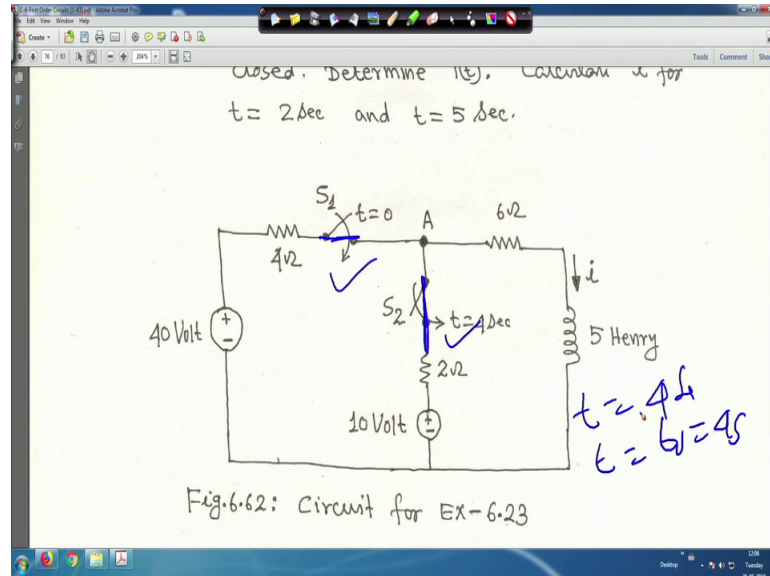 C-6-First Order Circuits [1-83].pdf - Adobe Acrobat Pro
File Edit View Window Help
Create
76 / 83
204%
Tools Comment
closed. Determine i(t). Calculate i for
t = 2 sec and t = 5 sec.
S1
t=0
A
6Ω
4Ω
i
S2
t=4 sec
40 Volt
5 Henry
2Ω
10 Volt
t =
t =
Fig.6.62: Circuit for Ex-6.23
12:06
Desktop
Tuesday